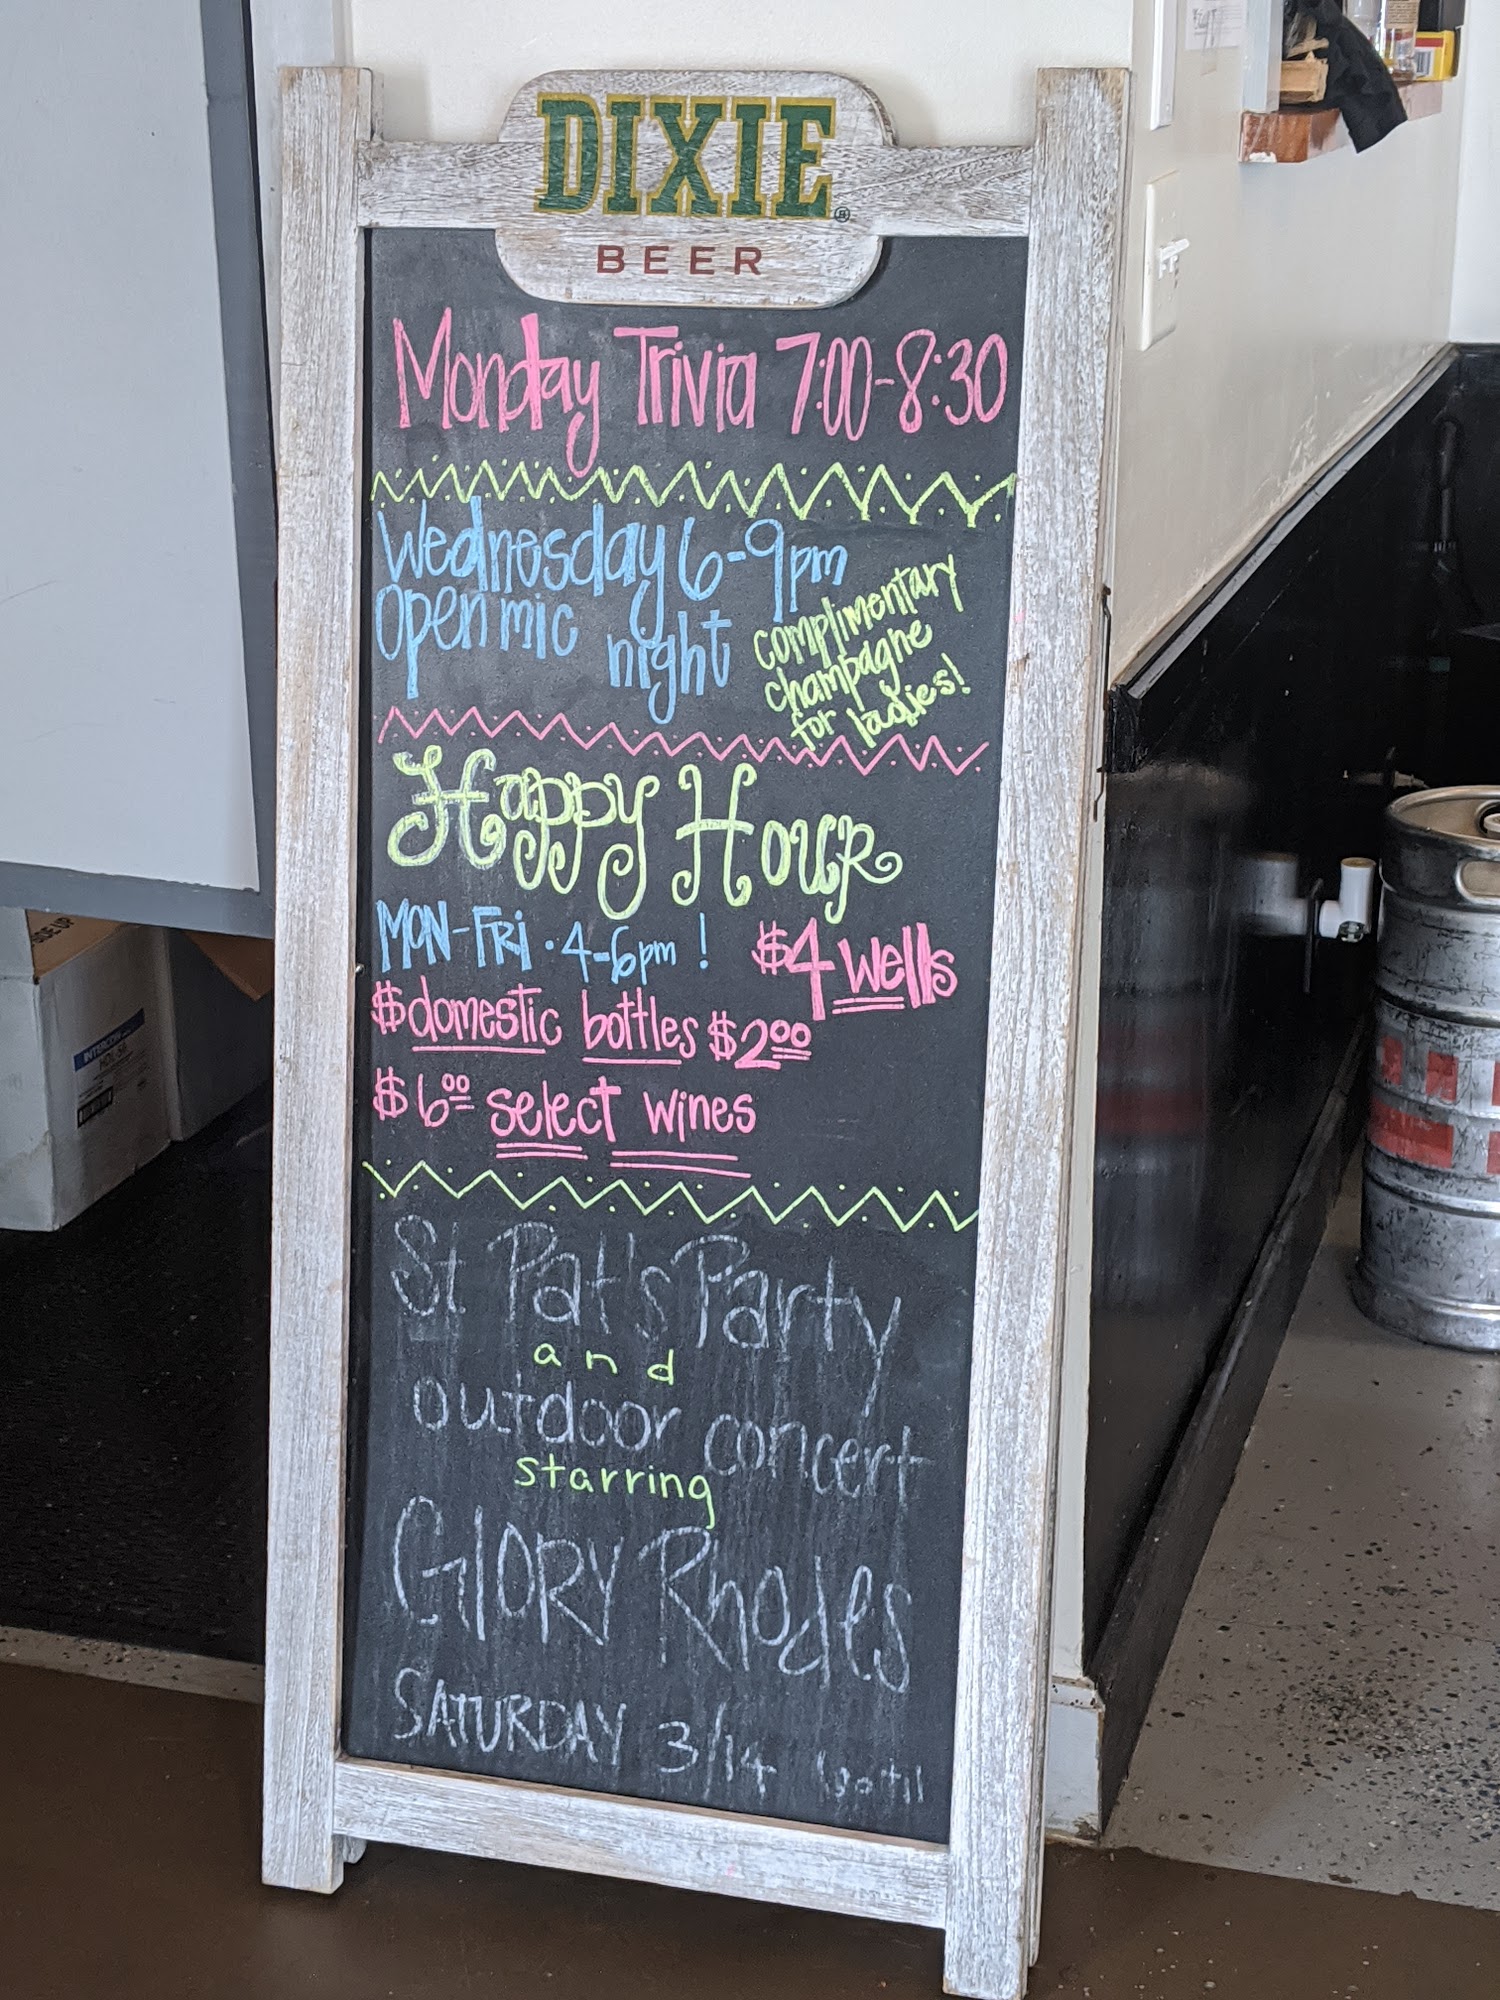 DIXIE®
BEER
Monday Trivia 7:00-8:30
Wednesday 6-9pm
open mic night
complimentary
champagne
for ladies!
Happy Hour
MON-FRi · 4-6pm !
$4 wells
$domestic bottles $2.00
$6.00 select wines
St Pat's Party
and
outdoor concert
starring
GlORY Rhodes
SATURDAY 3/14
SIDE UP
INTERCON